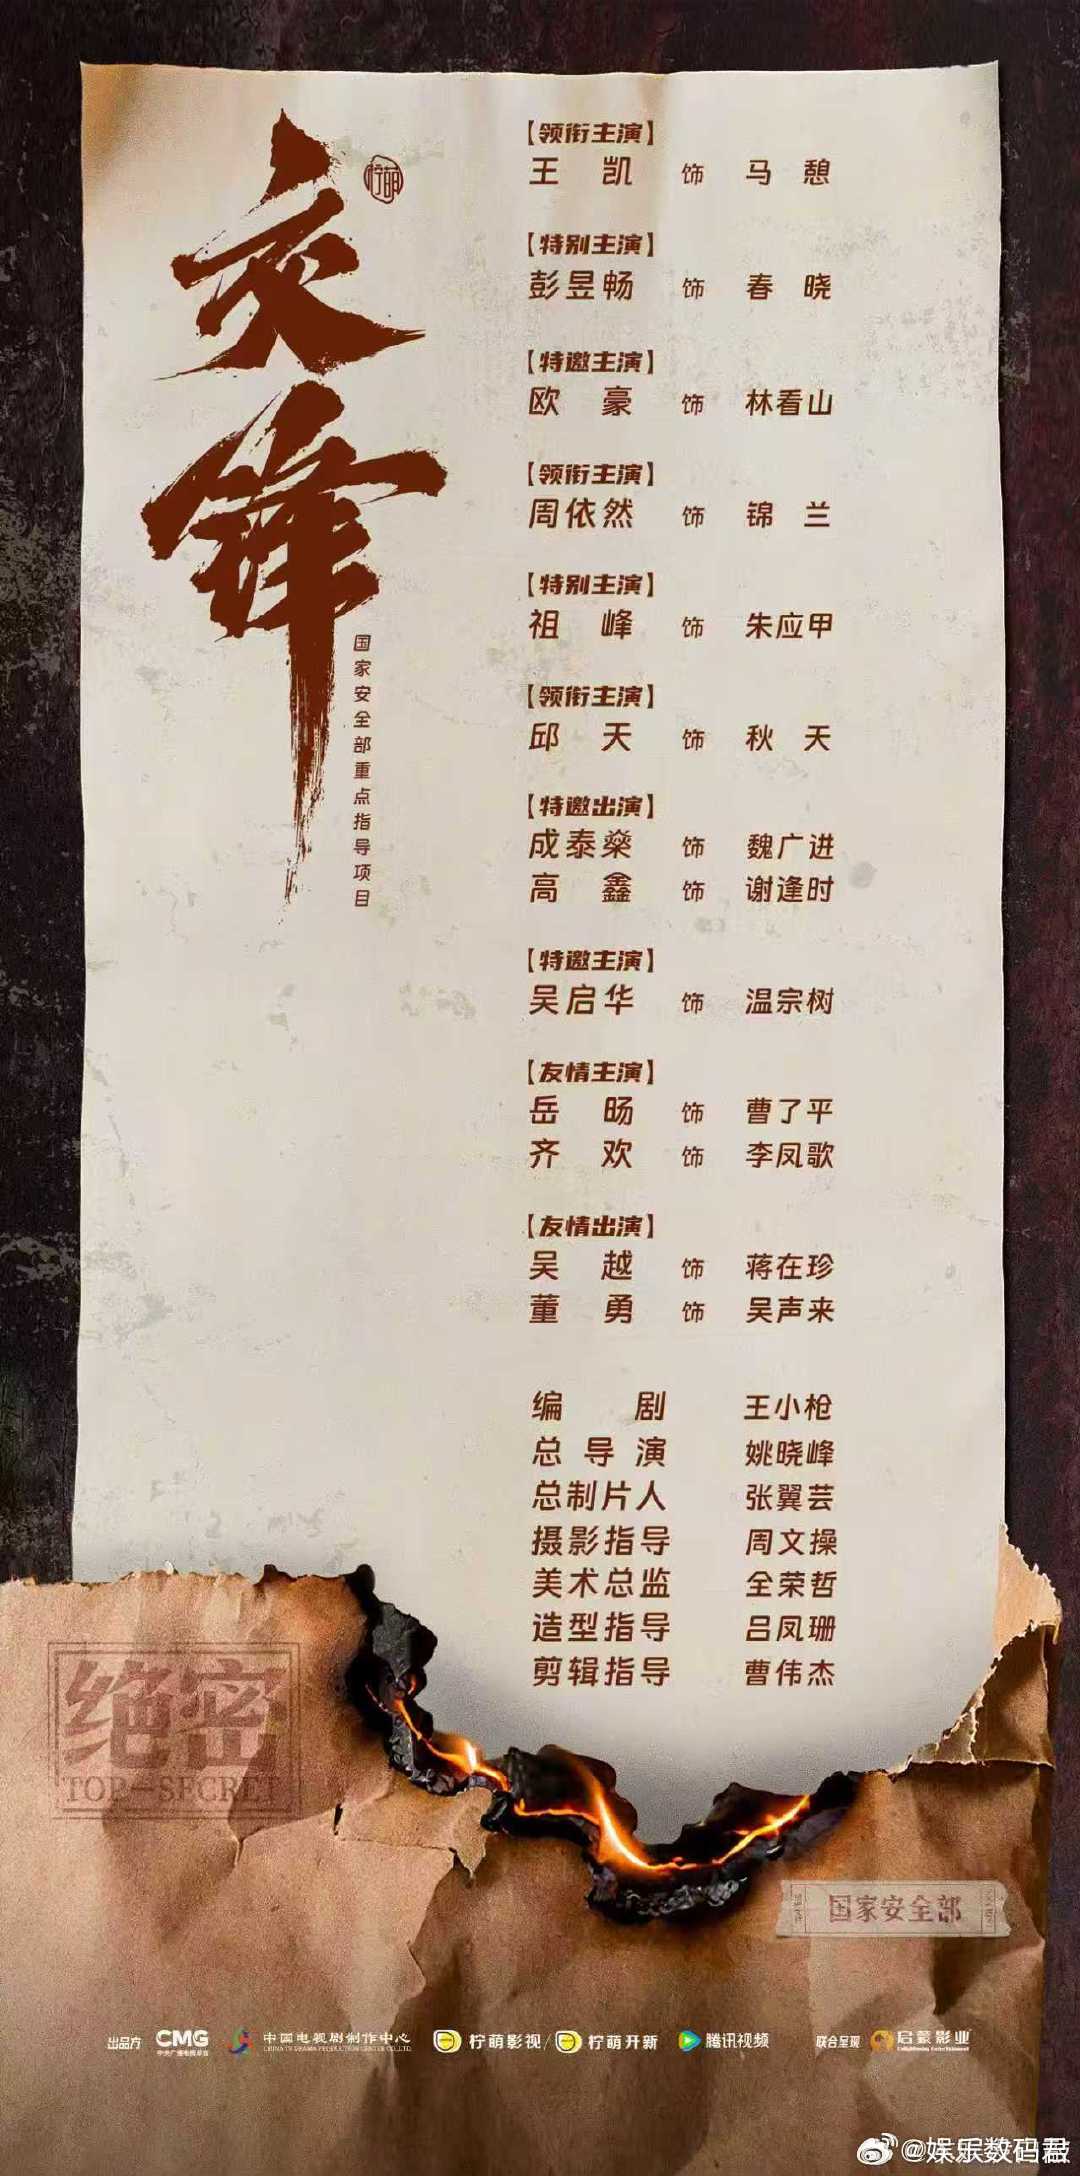 交锋
柠萌
国家安全部重点指导项目
【领衔主演】
王凯 饰 马憩
【特别主演】
彭昱畅 饰 春晓
【特邀主演】
欧豪 饰 林看山
【领衔主演】
周依然 饰 锦兰
【特别主演】
祖峰 饰 朱应甲
【领衔主演】
邱天 饰 秋天
【特邀出演】
成泰燊 饰 魏广进
高鑫 饰 谢逢时
【特邀主演】
吴启华 饰 温宗树
【友情主演】
岳旸 饰 曹了平
齐欢 饰 李凤歌
【友情出演】
吴越 饰 蒋在珍
董勇 饰 吴声来
编剧 王小枪
总导演 姚晓峰
总制片人 张翼芸
摄影指导 周文操
美术总监 全荣哲
造型指导 吕凤珊
剪辑指导 曹伟杰
绝密
TOP-SECRET
国家安全部
出品方 CMG 中央广播电视总台 中国电视剧制作中心 CHINA TV DRAMA PRODUCTION CENTER CO.,LTD. 柠萌影视/柠萌开新 腾讯视频 联合呈现 启蒙影业 Enlightening Entertainment
@娱乐数码君